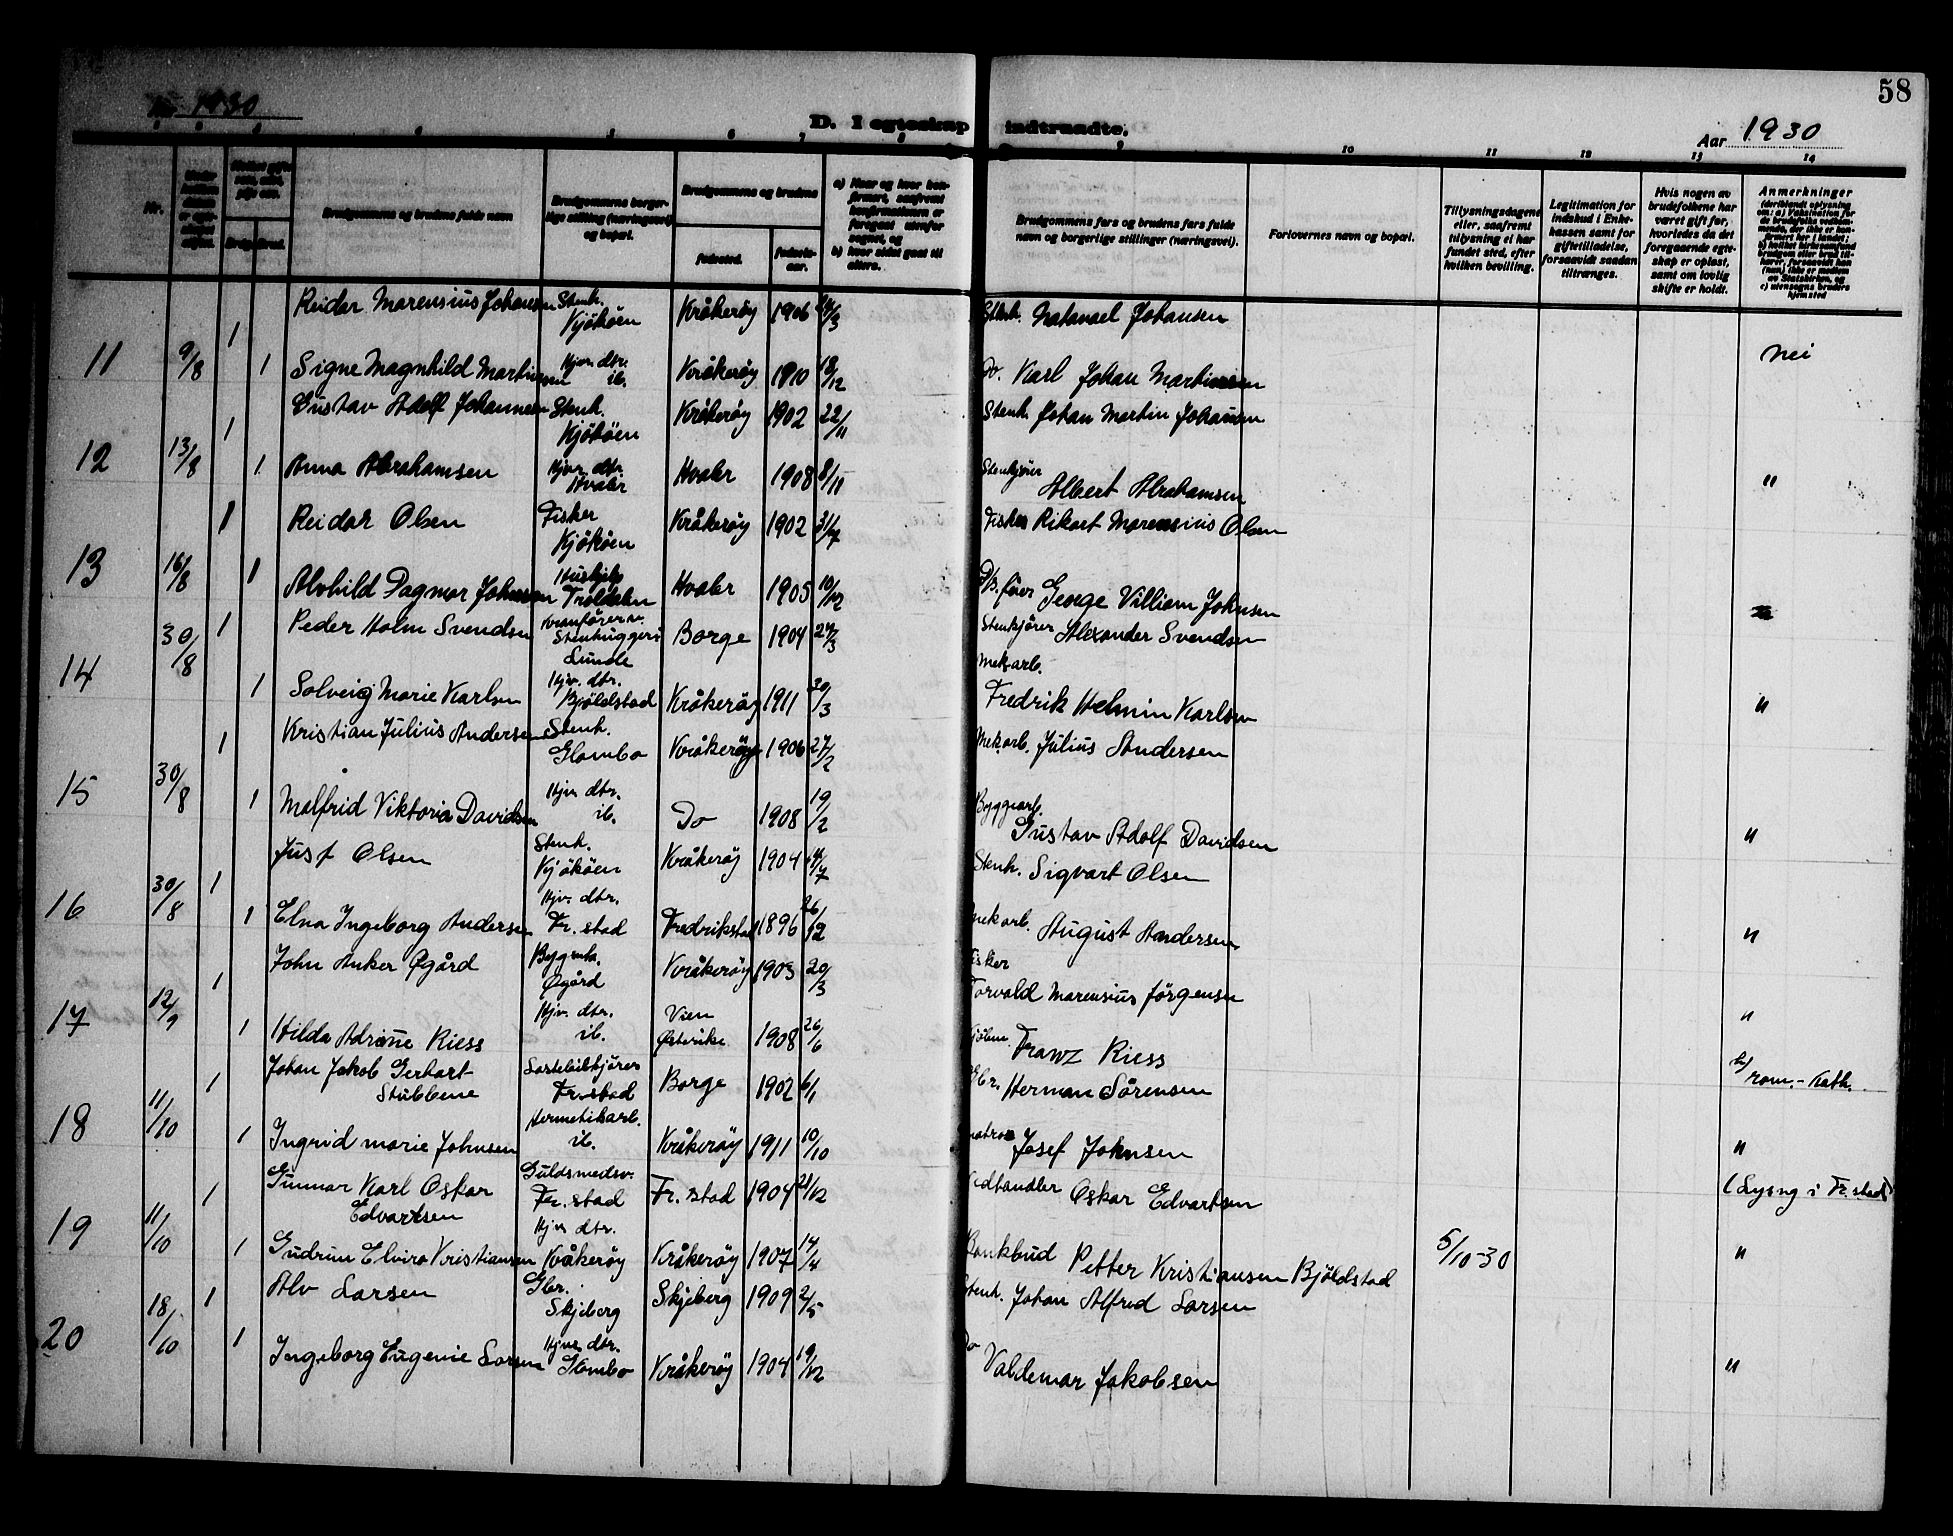 58
1930
D. I egteskap indtraadte.
Aar 1930
Nr.
Brudgommens og brudens fulde navn
Brudgommens borgerlige stilling (næringsvei) og bopæl.
Brudgommens og brudens
fødested.
fødselsaar.
Brudgommens fars og brudens fars fulde navn og borgerlige stillinger (næringsvei).
Forlovernes navn og bopæl.
Tillysningsdagene eller, saafremt tillysning ei har fundet sted, efter hvilken bevilling.
Legitimation for indskud i Enkekassen samt for giftetilladelse, forsaavidt saadan tiltrænges.
Hvis nogen av brudefolkene har været gift før, hvorledes da det foregaaende egteskap er opløst, samt om lovlig skifte er holdt.
Anmerkninger
1 Reidar Marensius Johansen Stenh. Kjøkøen Kråkerøy 1906 Stenh. Natanael Johansen
11 9/8 1 Signe Magnhild Martinsen Hjv. dtr. ib. Kråkerøy 1910 18/12 Do. Karl Johan Martinsen Nei
1 Gustav Adolf Johannesen Stenh. Kjøkøen Kråkerøy 1902 22/11 Stenh. Johan Martin Johansen
12 13/8 1 Anna Abrahamsen Hjv. dtr. Hvaler Hvaler 1908 8/11 Stenkjører Albert Abrahamsen "
1 Reidar Olsen Fisker Kjøkøen Kråkerøy 1902 31/7 Fisker Rikart Marensius Olsen
13 16/8 1 Alvhild Dagmar Johnsen Hushjlp Troldalen Hvaler 1905 10/12 fører George Villiam Johnsen
1 Peder Holm Svendsen Kranfører v. Stenhuggeri Lunde Borge 1904 24/3 Stenkjører Alexander Svendsen
14 30/8 1 Solveig Marie Karlsen Hjv. dtr. Bjøldstad Kråkerøy 1911 30/3 Mek.arb. Fredrik Helmin Karlsen "
1 Kristian Julius Andersen Stenh. Glombo Kråkerøy 1906 27/2 Mek.arb. Julius Andersen
15 30/8 1 Malfrid Viktoria Davidsen Hjv. dtr. ib. Do 1908 19/2 Byggearb. Gustav Adolf Davidsen "
1 Just Olsen Stenh. Kjøkøen Kråkerøy 1904 Stenh. Sigvart Olsen
16 30/8 1 Elna Ingeborg Andersen Hjv. dtr. Fr.stad Fredrikstad 1896 26/12 Mek arb. August Andersen "
1 John Anker Øgård Øgård Kråkerøy 1903 20/3 Fisker Torvald Marensius Jørgensen
17 12/9 1 Hilda Adrine Riess Hjv. dtr. ib. Vien Østerike 1908 26/6 Franz Riess "
1 Johan Jakob Gerhart Stubbene Lastebilkjører Fr.stad Borge 1902 6/1 Gbr. Herman Sørensen b/ rom.-kath.
18 11/10 1 Ingrid Marie Johnsen Hermetikarb. ib. Kråkerøy 1911 10/10 Matros Josef Johnsen "
1 Gunnar Karl Oskar Edvartsen Guldsmedsv. Fr.stad Fr.stad 1904 21/12 Vedhandler Oskar Edvartsen (Lysng i Fr.stad)
19 11/10 1 Gudrun Elvira Kristiansen Hjv. dtr. Kråkerøy Kråkerøy 1907 14/4 Bankbud Petter Kristiansen Bjøldstad 5/10-30 "
1 Alv Larsen Gbr. Skjeberg Skjeberg 1909 2/5 Stenh. Johan Alfred Larsen
20 18/10 1 Ingeborg Eugenie Larsen Hjv. dtr. Glombo Kråkerøy 1904 19/12 Do Valdemar Jakobsen "